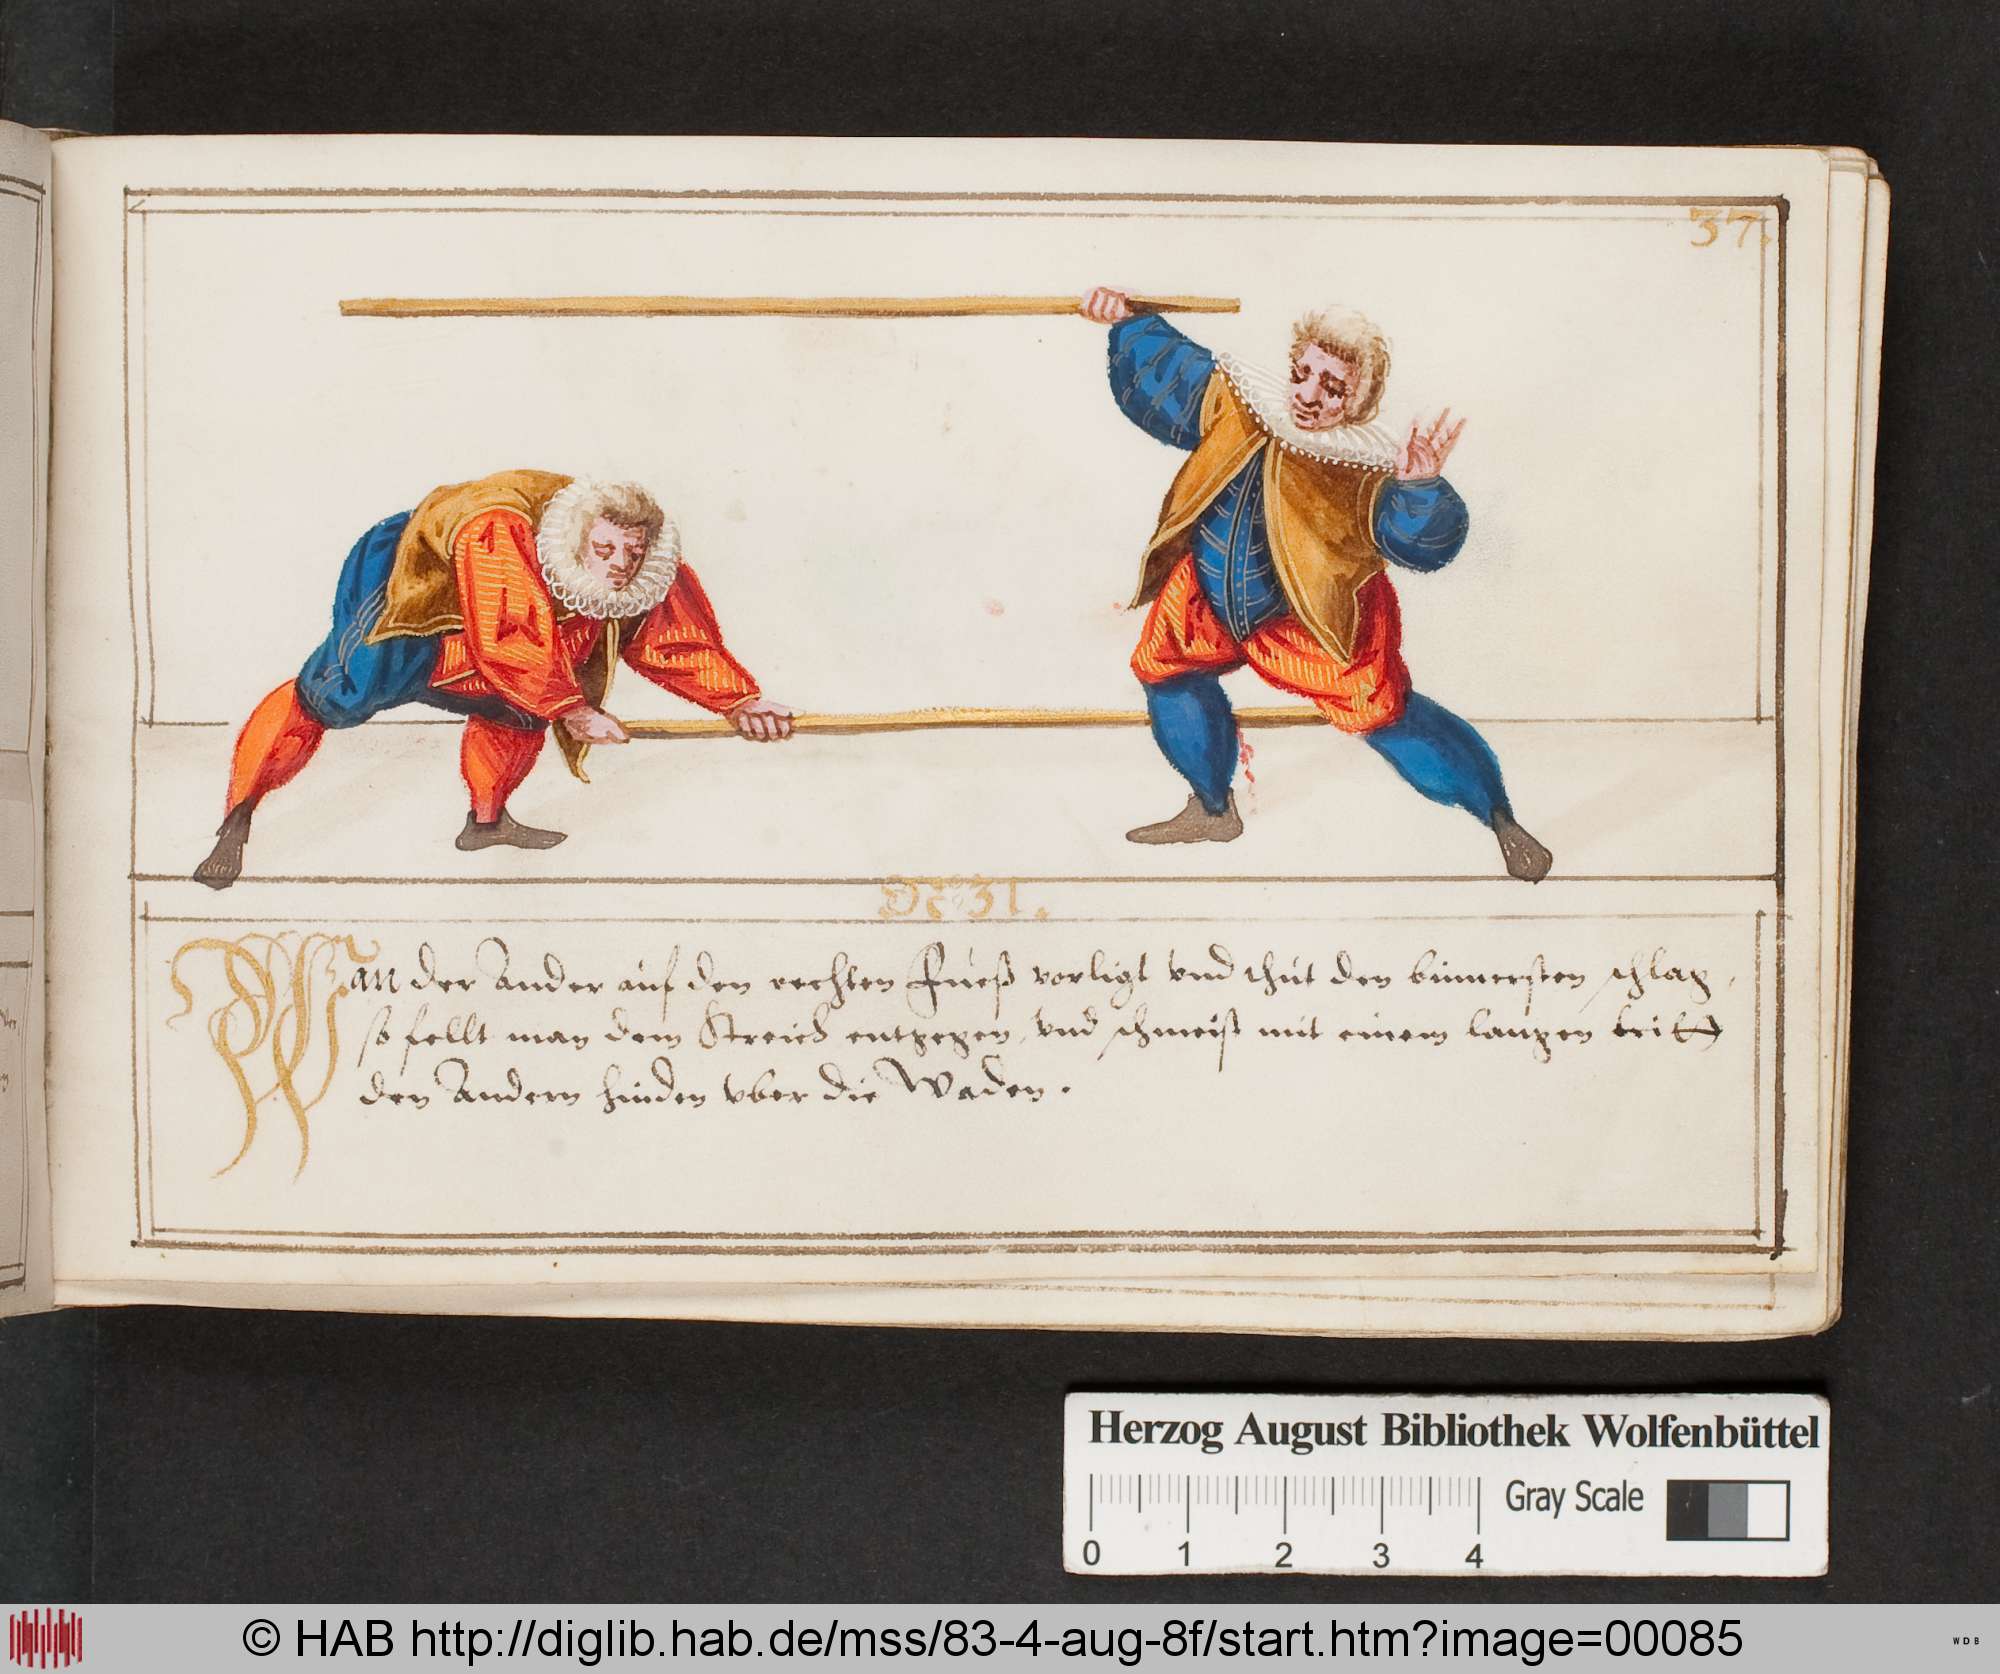 37.
No. 31.
Wan der Ander auf den rechten Fueß vorligt vnd thut den binnersten schlag,
so fellt man dem Streich entgegen, vnd schmeist mit einem langen tritt
den Andern hinden vber die Waden.
Herzog August Bibliothek Wolfenbüttel
Gray Scale
0 1 2 3 4
© HAB http://diglib.hab.de/mss/83-4-aug-8f/start.htm?image=00085
WDB